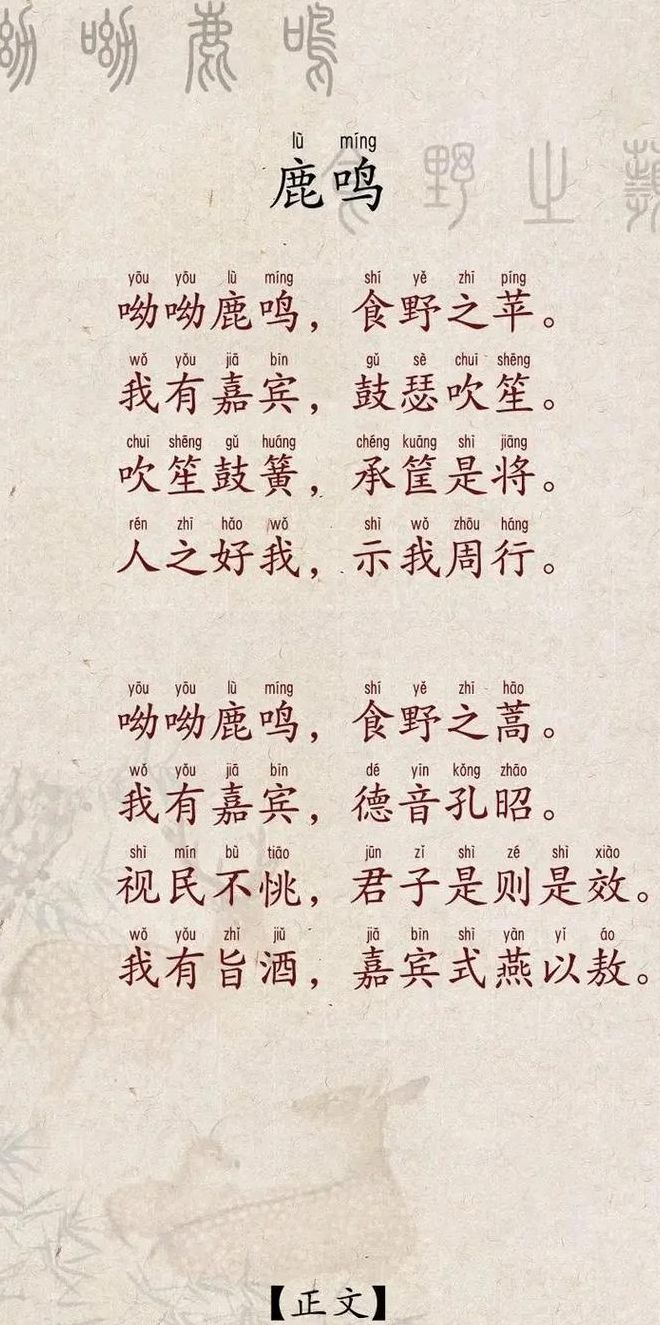 呦呦鹿鸣
食野之苹
lù míng
鹿鸣
yōu yōu lù míng shí yě zhī píng
呦呦鹿鸣，食野之苹。
wǒ yǒu jiā bīn gǔ sè chuī shēng
我有嘉宾，鼓瑟吹笙。
chuī shēng gǔ huáng chéng kuāng shì jiāng
吹笙鼓簧，承筐是将。
rén zhī hǎo wǒ shì wǒ zhōu háng
人之好我，示我周行。
yōu yōu lù míng shí yě zhī hāo
呦呦鹿鸣，食野之蒿。
wǒ yǒu jiā bīn dé yīn kǒng zhāo
我有嘉宾，德音孔昭。
shì mín bù tiāo jūn zǐ shì zé shì xiào
视民不恌，君子是则是效。
wǒ yǒu zhǐ jiǔ jiā bīn shì yàn yǐ áo
我有旨酒，嘉宾式燕以敖。
【正文】